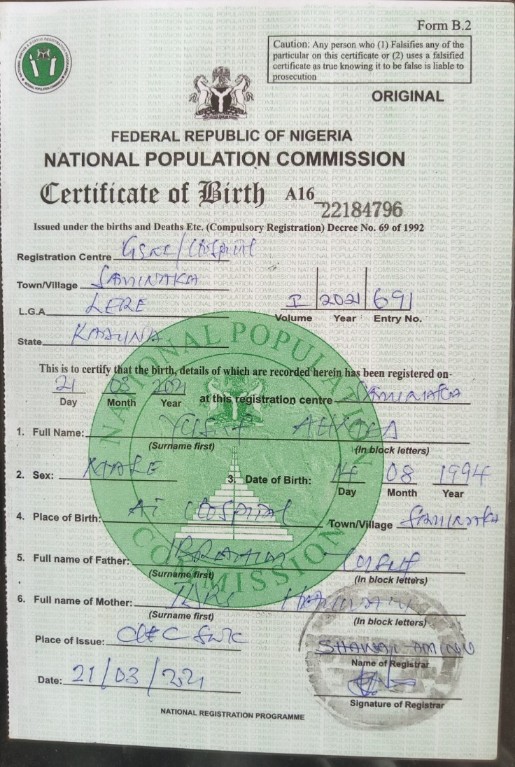 Form B.2
Caution: Any person who (1) Falsifies any of the
particular on this certificate or (2) uses a falsified
certificate as true knowing it to be false is liable to
prosecution
ORIGINAL
FEDERAL REPUBLIC OF NIGERIA
NATIONAL POPULATION COMMISSION
Certificate of Birth A16 22184796
Issued under the births and Deaths Etc. (Compulsory Registration) Decree No. 69 of 1992
Registration Centre
Town/Village SAMINAKA
L.G.A. LERE I 2021 691
Volume Year Entry No.
State KADUNA
This is to certify that the birth, details of which are recorded herein has been registered on-
21 03 2021 at this registration centre SAMINAKA
Day Month Year
1. Full Name:
(Surname first) (in block letters)
2. Sex: MALE 3. Date of Birth: 14 08 1994
Day Month Year
4. Place of Birth: HOSPITAL Town/Village SAMINAKA
5. Full name of Father: IBRAHIM YUSUF
(Surname first) (in block letters)
6. Full name of Mother:
(Surname first) (In block letters)
Place of Issue: AMINU
Name of Registrar
Date: 21/03/2021
Signature of Registrar
NATIONAL REGISTRATION PROGRAMME
NATIONAL POPULATION COMMISSION